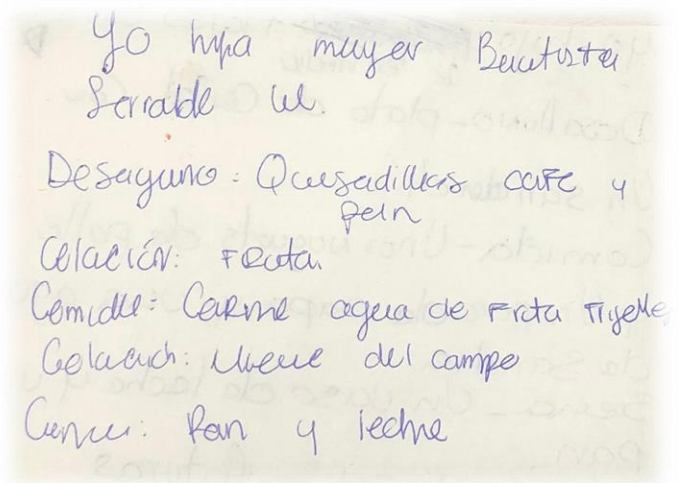 Yo hija mayer Bautista
Serralde W.
Desayuno: Quesadillas cafe y
pan
Colación: Fruta
Comida: Carne agua de Fruta
Colación: del campo
Cena: Pan y leche